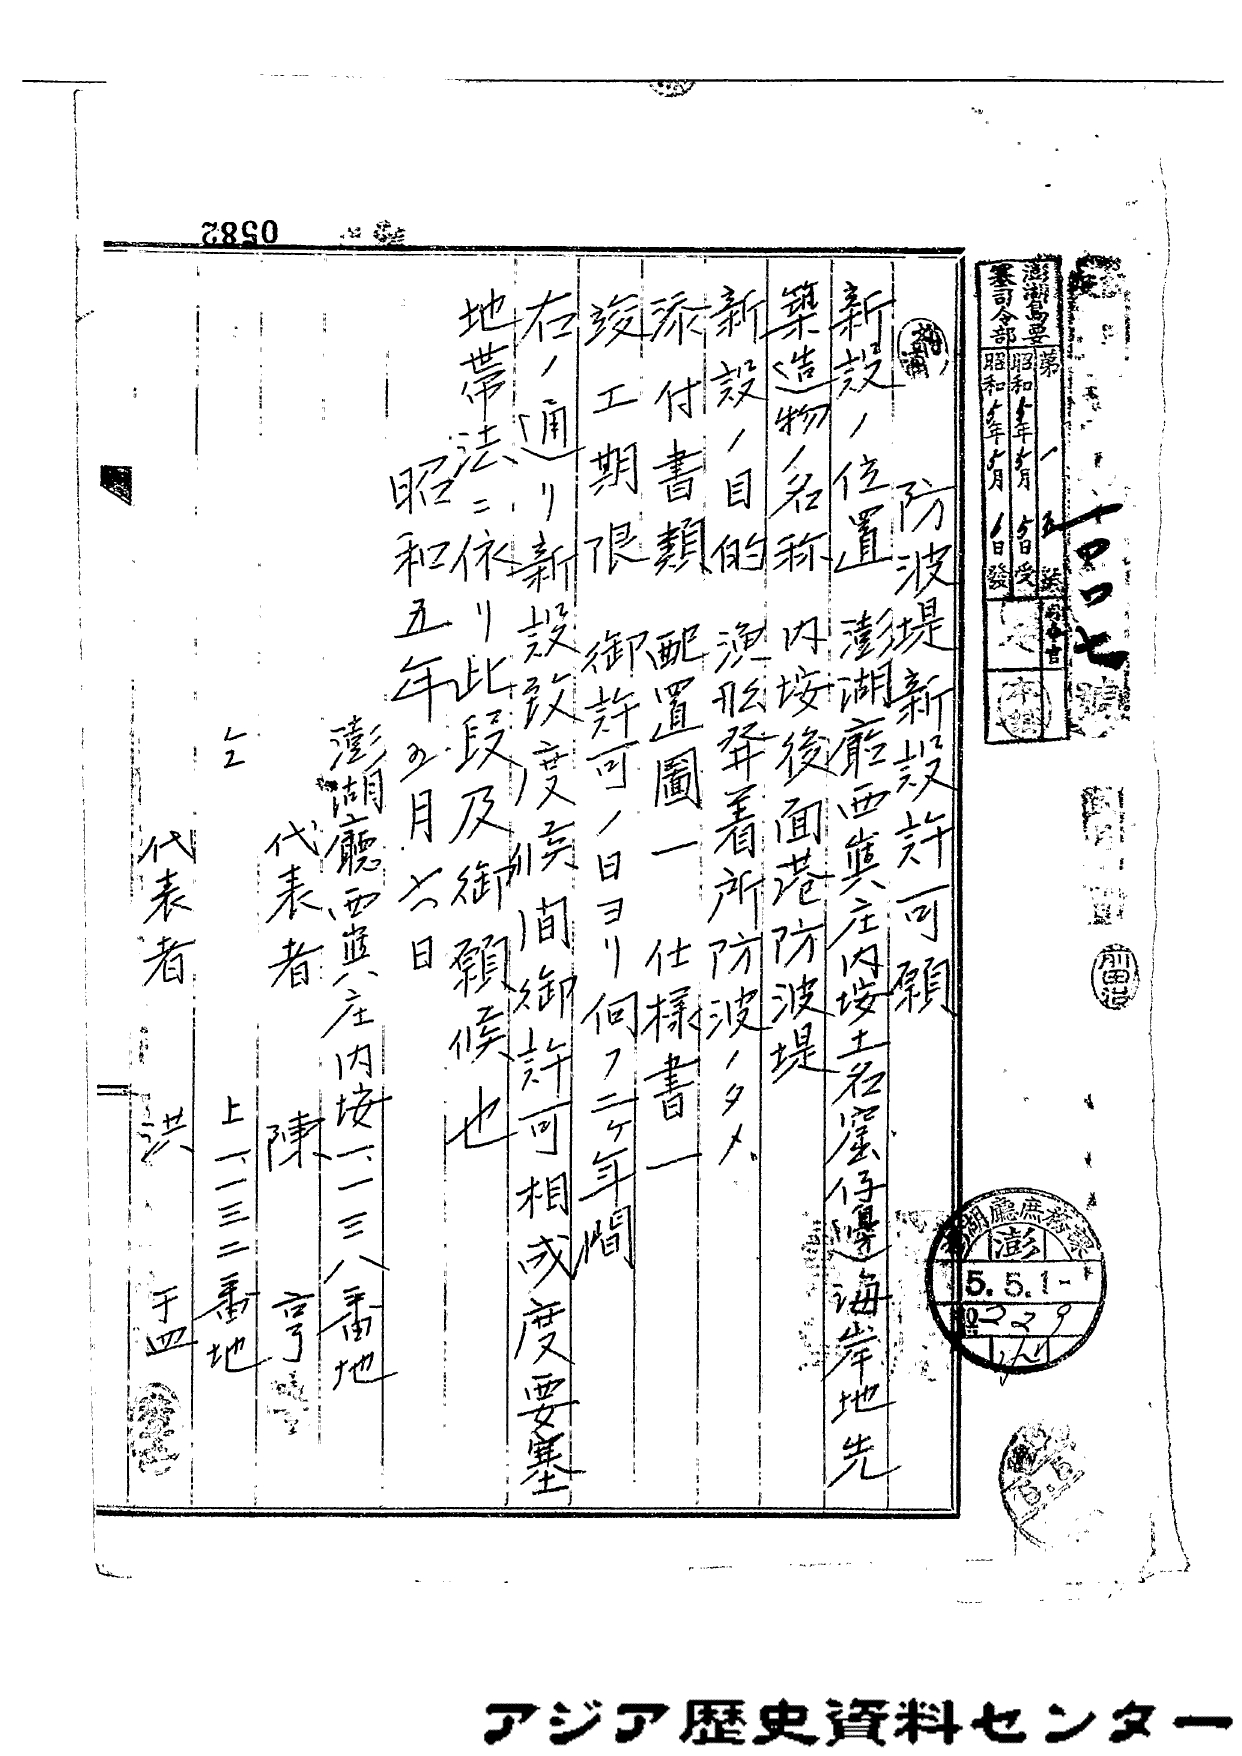 0582
澎湖島要塞司令部
第一五號
昭和5年5月5日受
昭和5年5月1日發
一四〇七
號
前田治
防波堤新設許可願
新設ノ位置 澎湖廳西嶼庄內垵土名窟仔邊海岸地先
築造物ノ名称 內垵後面港防波堤
新設ノ目的 漁船発着所防波ノタメ
添付書類 配置圖一 仕様書一
竣工期限 御許可ノ日ヨリ向フ二ヶ年間
右ノ通リ新設致度候間御許可相成度要塞
地帯法ニ依リ此段及御願候也
昭和五年 月 日
澎湖廳西嶼庄內垵一、一三八番地
代表者 陳 亨
仝 上一、一三二番地
代表者 洪
澎湖廳庶務課
澎
5.5.1
229
アジア歴史資料センター